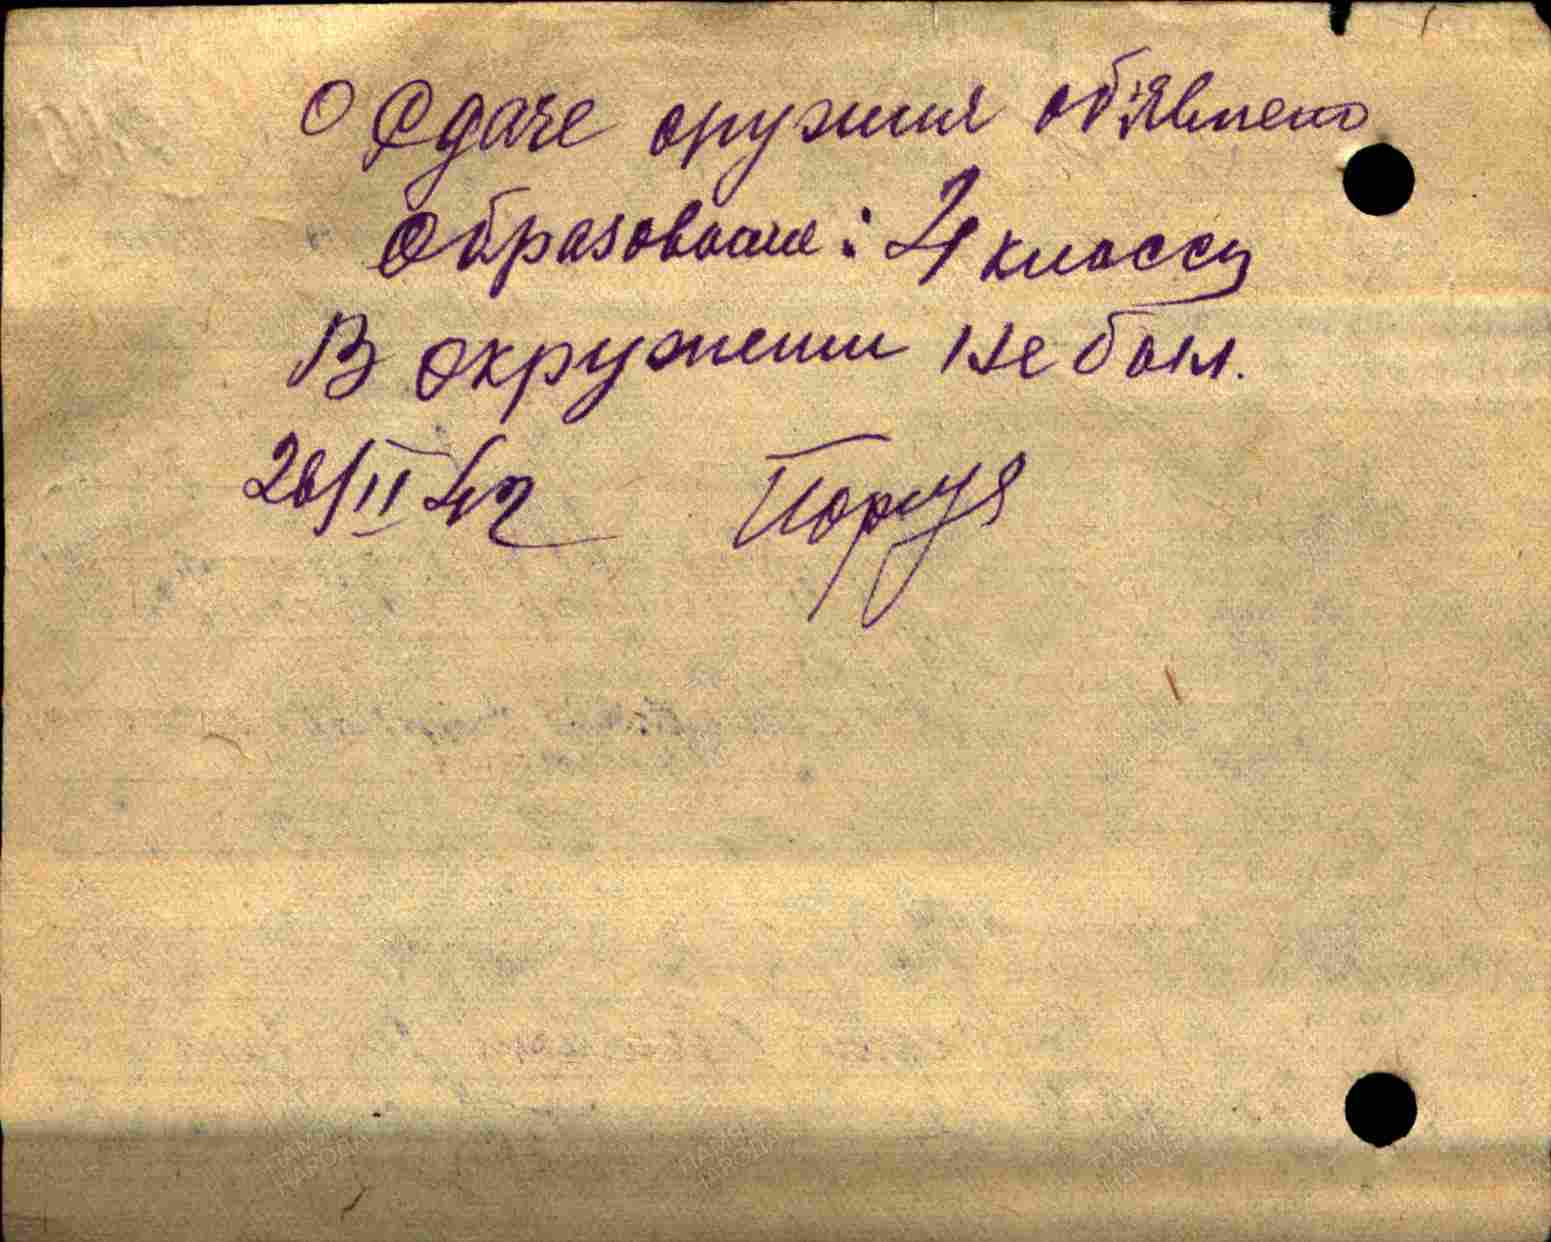 О сдаче оружия об'явлено
Образование: 4 класса
В окружении не был.
26/II 42
ПАМЯТЬ НАРОДА
ПАМЯТЬ НАРОДА
ПАМЯТЬ НАРОДА